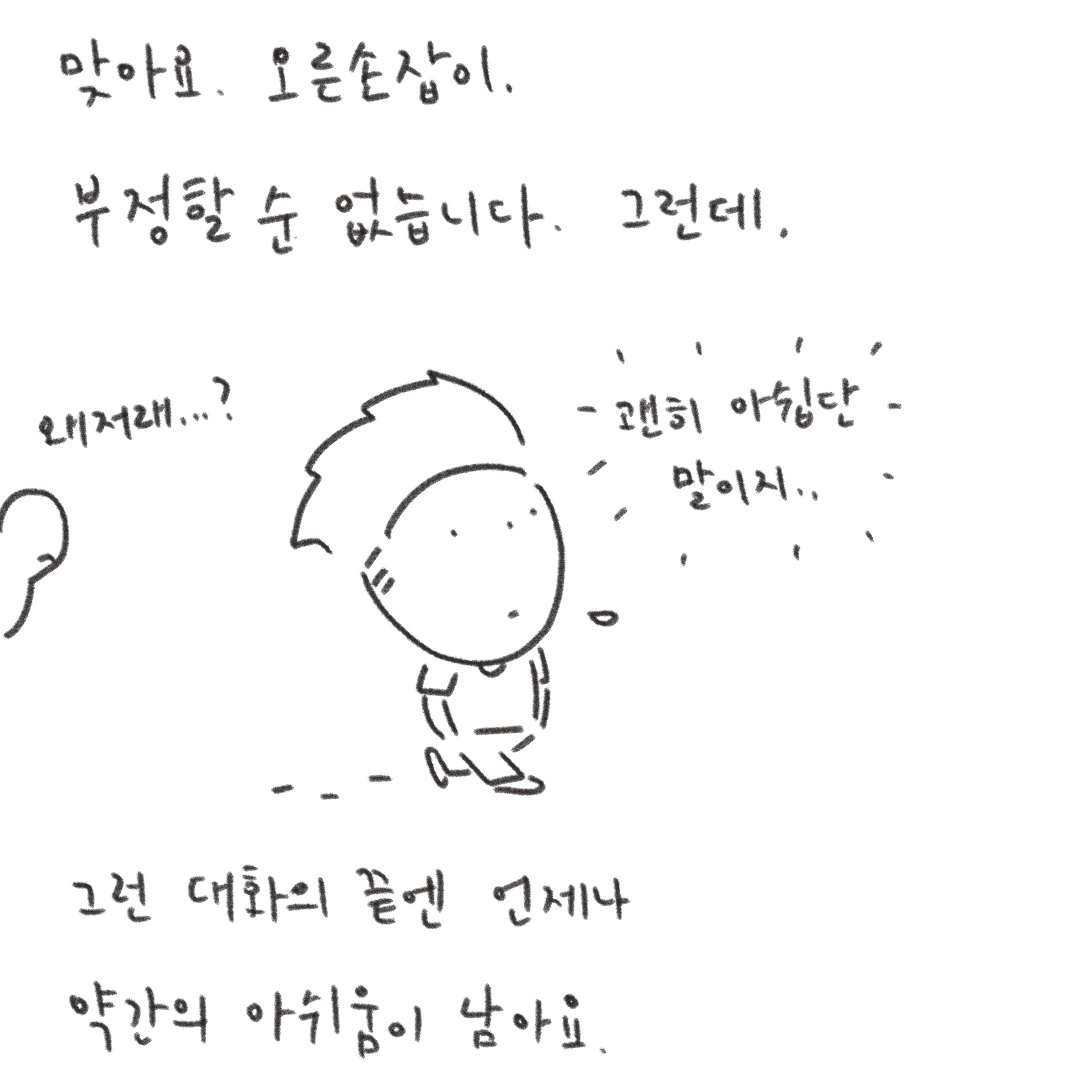 맞아요. 오른손잡이.
부정할 순 없습니다. 그런데.
왜저래...?
괜히 아쉽단
말이지..
그런 대화의 끝엔 언제나
약간의 아쉬움이 남아요.